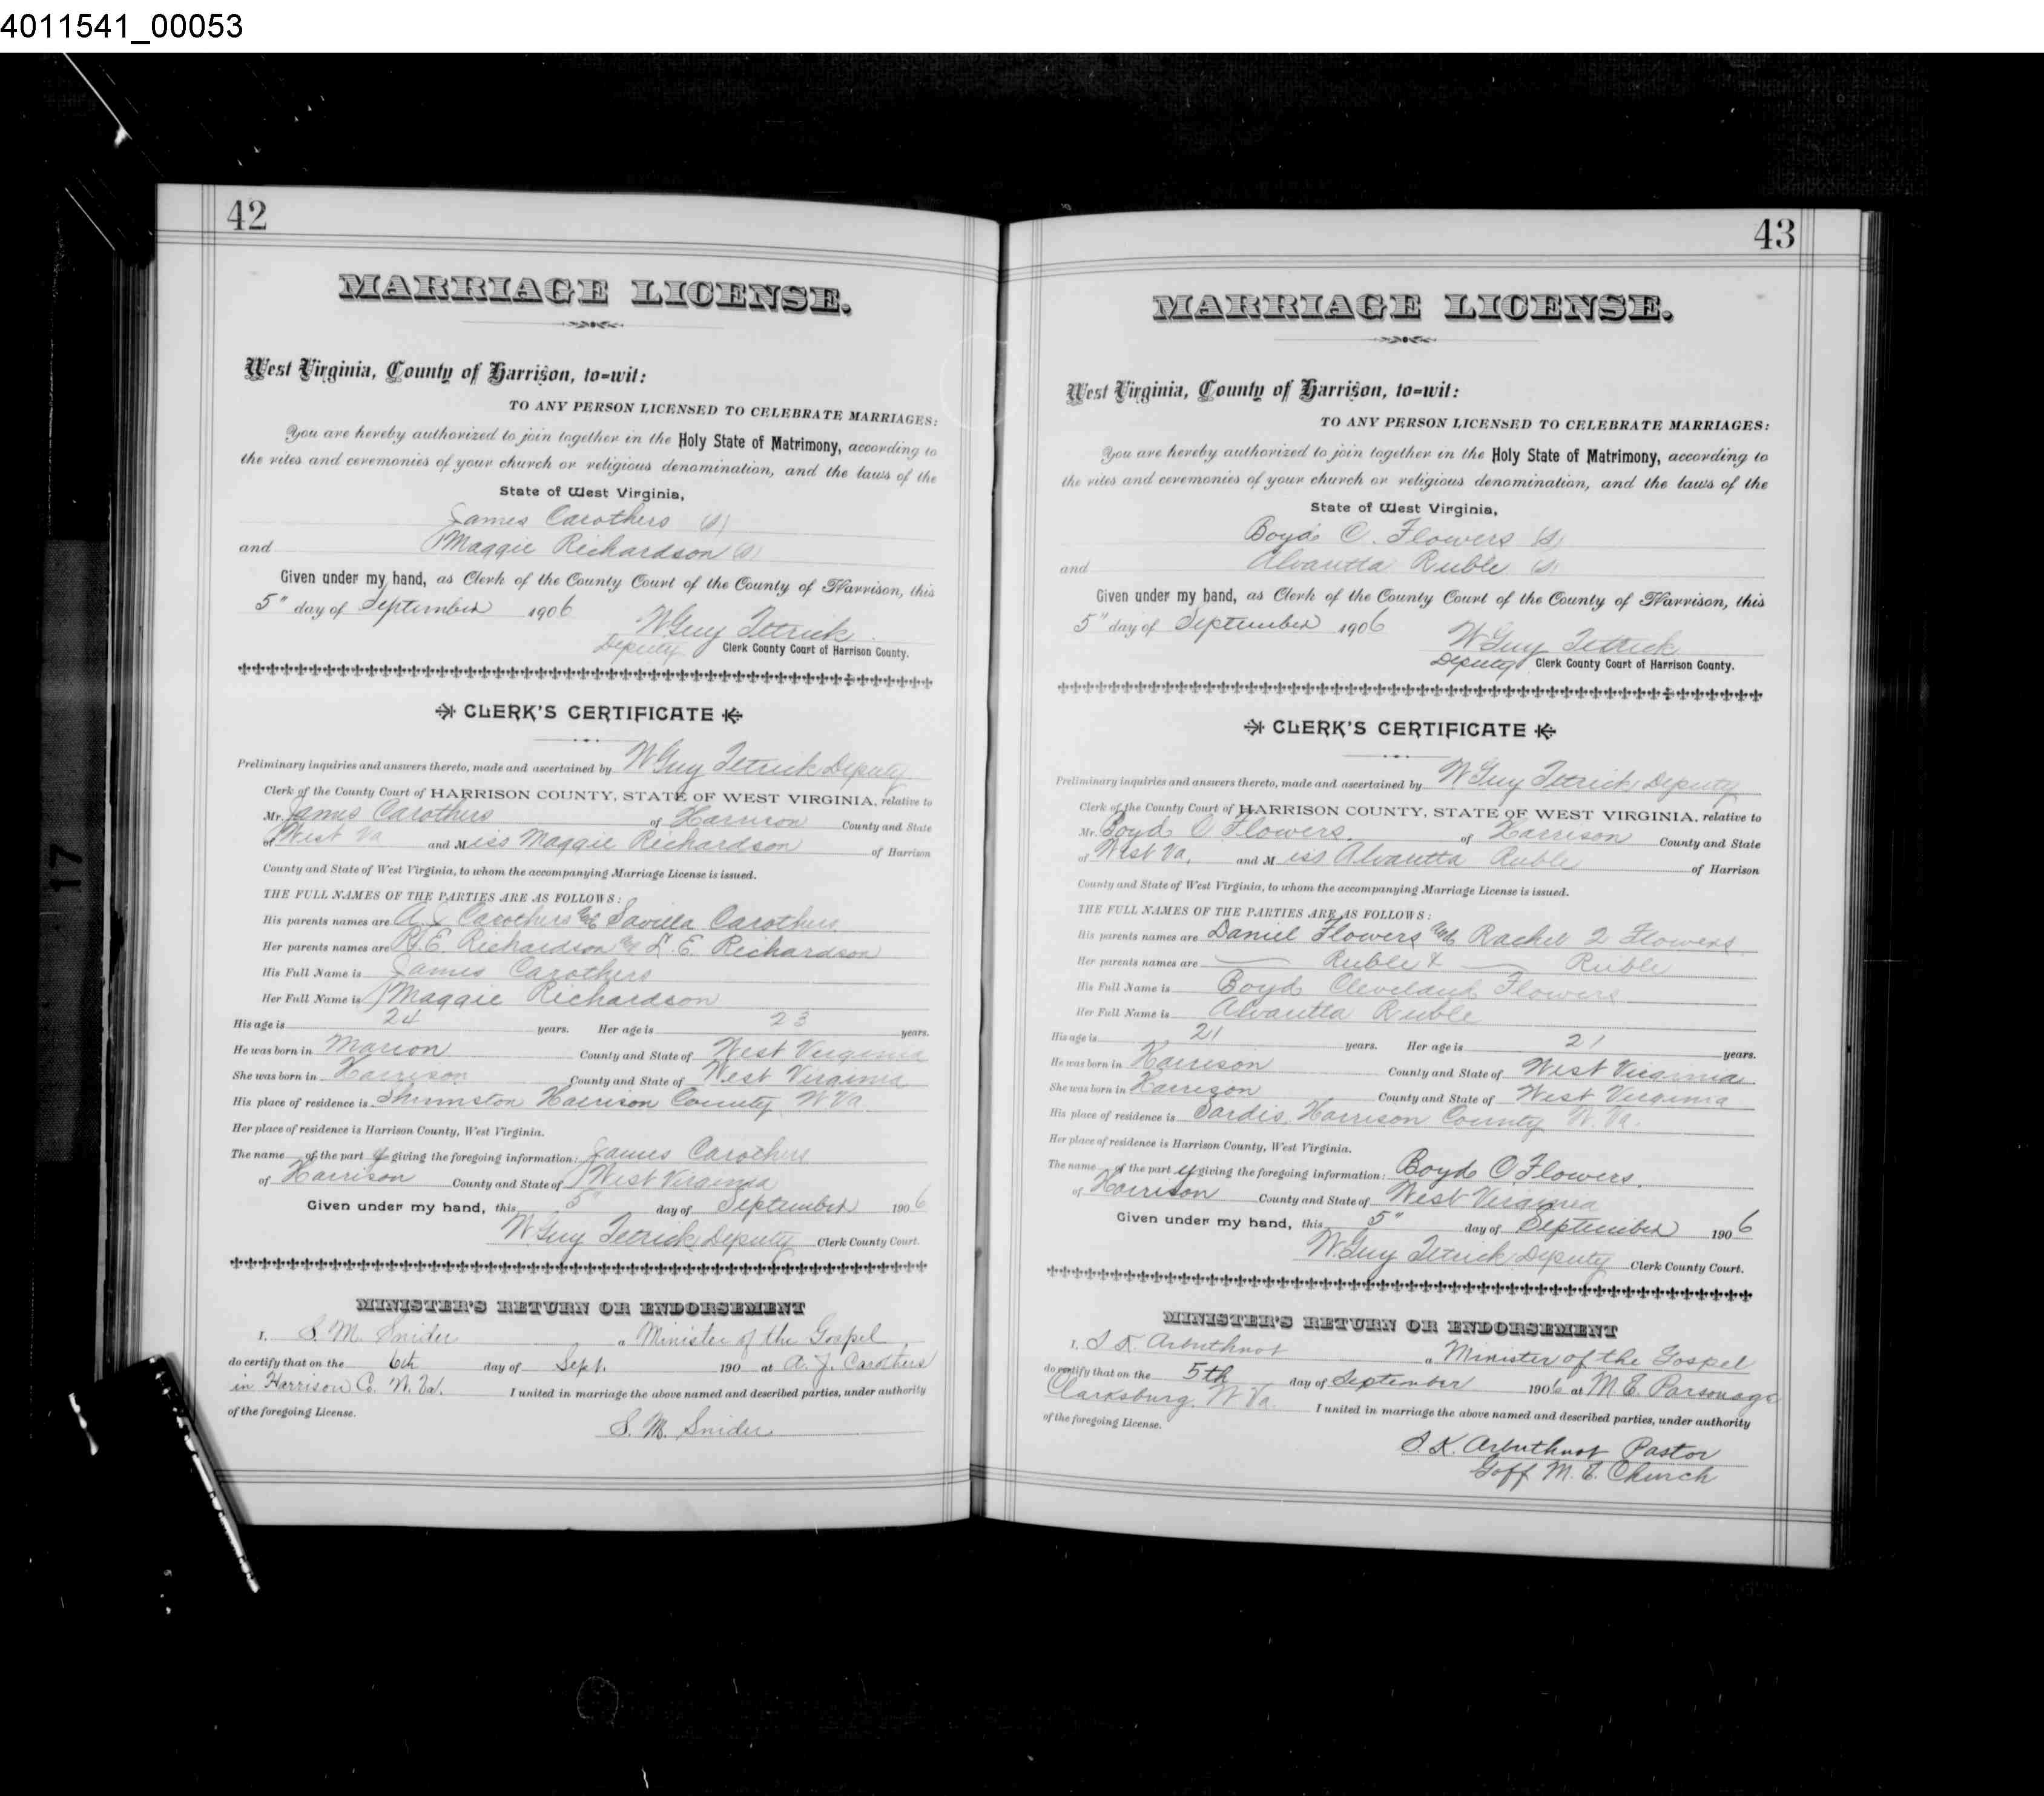 4011541_00053
42
MARRIAGE LICENSE.
West Virginia, County of Harrison, to-wit:
TO ANY PERSON LICENSED TO CELEBRATE MARRIAGES:
You are hereby authorized to join together in the Holy State of Matrimony, according to
the rites and ceremonies of your church or religious denomination, and the laws of the
State of West Virginia,
James Carothers (s)
and Maggie Richardson (s)
Given under my hand, as Clerk of the County Court of the County of Harrison, this
5" day of September 1906
W Guy Tetrick
Deputy Clerk County Court of Harrison County.
CLERK'S CERTIFICATE
Preliminary inquiries and answers thereto, made and ascertained by W Guy Tetrick Deputy
Clerk of the County Court of HARRISON COUNTY, STATE OF WEST VIRGINIA, relative to
Mr. James Carothers of Harrison County and State
of West Va and Miss Maggie Richardson of Harrison
County and State of West Virginia, to whom the accompanying Marriage License is issued.
THE FULL NAMES OF THE PARTIES ARE AS FOLLOWS:
His parents names are A. J. Carothers and Savilla Carothers
Her parents names are R. E. Richardson and L. E. Richardson
His Full Name is James Carothers
Her Full Name is Maggie Richardson
His age is 24 years. Her age is 23 years.
He was born in Marion County and State of West Virginia
She was born in Harrison County and State of West Virginia
His place of residence is Shinnston Harrison County W Va
Her place of residence is Harrison County, West Virginia.
The name of the party giving the foregoing information: James Carothers
of Harrison County and State of West Virginia
Given under my hand, this 5" day of September 1906
W. Guy Tetrick Deputy Clerk County Court.
MINISTER'S RETURN OR ENDORSEMENT
I, S. M. Snider a Minister of the Gospel
do certify that on the 6th day of Sept. 190 at A. J. Carothers
in Harrison Co. W. Va. I united in marriage the above named and described parties, under authority
of the foregoing License.
S. M. Snider
43
MARRIAGE LICENSE.
West Virginia, County of Harrison, to-wit:
TO ANY PERSON LICENSED TO CELEBRATE MARRIAGES:
You are hereby authorized to join together in the Holy State of Matrimony, according to
the rites and ceremonies of your church or religious denomination, and the laws of the
State of West Virginia,
Boyd C. Flowers (s)
and Alvautta Ruble (s)
Given under my hand, as Clerk of the County Court of the County of Harrison, this
5" day of September 1906
W Guy Tetrick
Deputy Clerk County Court of Harrison County.
CLERK'S CERTIFICATE
Preliminary inquiries and answers thereto, made and ascertained by W Guy Tetrick Deputy
Clerk of the County Court of HARRISON COUNTY, STATE OF WEST VIRGINIA, relative to
Mr. Boyd C Flowers. of Harrison County and State
of West Va. and Miss Alvautta Ruble of Harrison
County and State of West Virginia, to whom the accompanying Marriage License is issued.
THE FULL NAMES OF THE PARTIES ARE AS FOLLOWS:
His parents names are Daniel Flowers and Rachel Flowers
Her parents names are — Ruble & — Ruble
His Full Name is Boyd Cleveland Flowers
Her Full Name is Alvautta Ruble
His age is 21 years. Her age is 21 years.
He was born in Harrison County and State of West Virginia
She was born in Harrison County and State of West Virginia
His place of residence is Sardis, Harrison County W. Va.
Her place of residence is Harrison County, West Virginia.
The name of the party giving the foregoing information: Boyd C. Flowers.
of Harrison County and State of West Virginia
Given under my hand, this 5" day of September 1906
W. Guy Tetrick Deputy Clerk County Court.
MINISTER'S RETURN OR ENDORSEMENT
I, S K Arbuthnot a Minister of the Gospel
do certify that on the 5th day of September 1906 at M. E. Parsonage
Clarksburg, W Va. I united in marriage the above named and described parties, under authority
of the foregoing License.
S. K. Arbuthnot Pastor
Goff M. E. Church
17